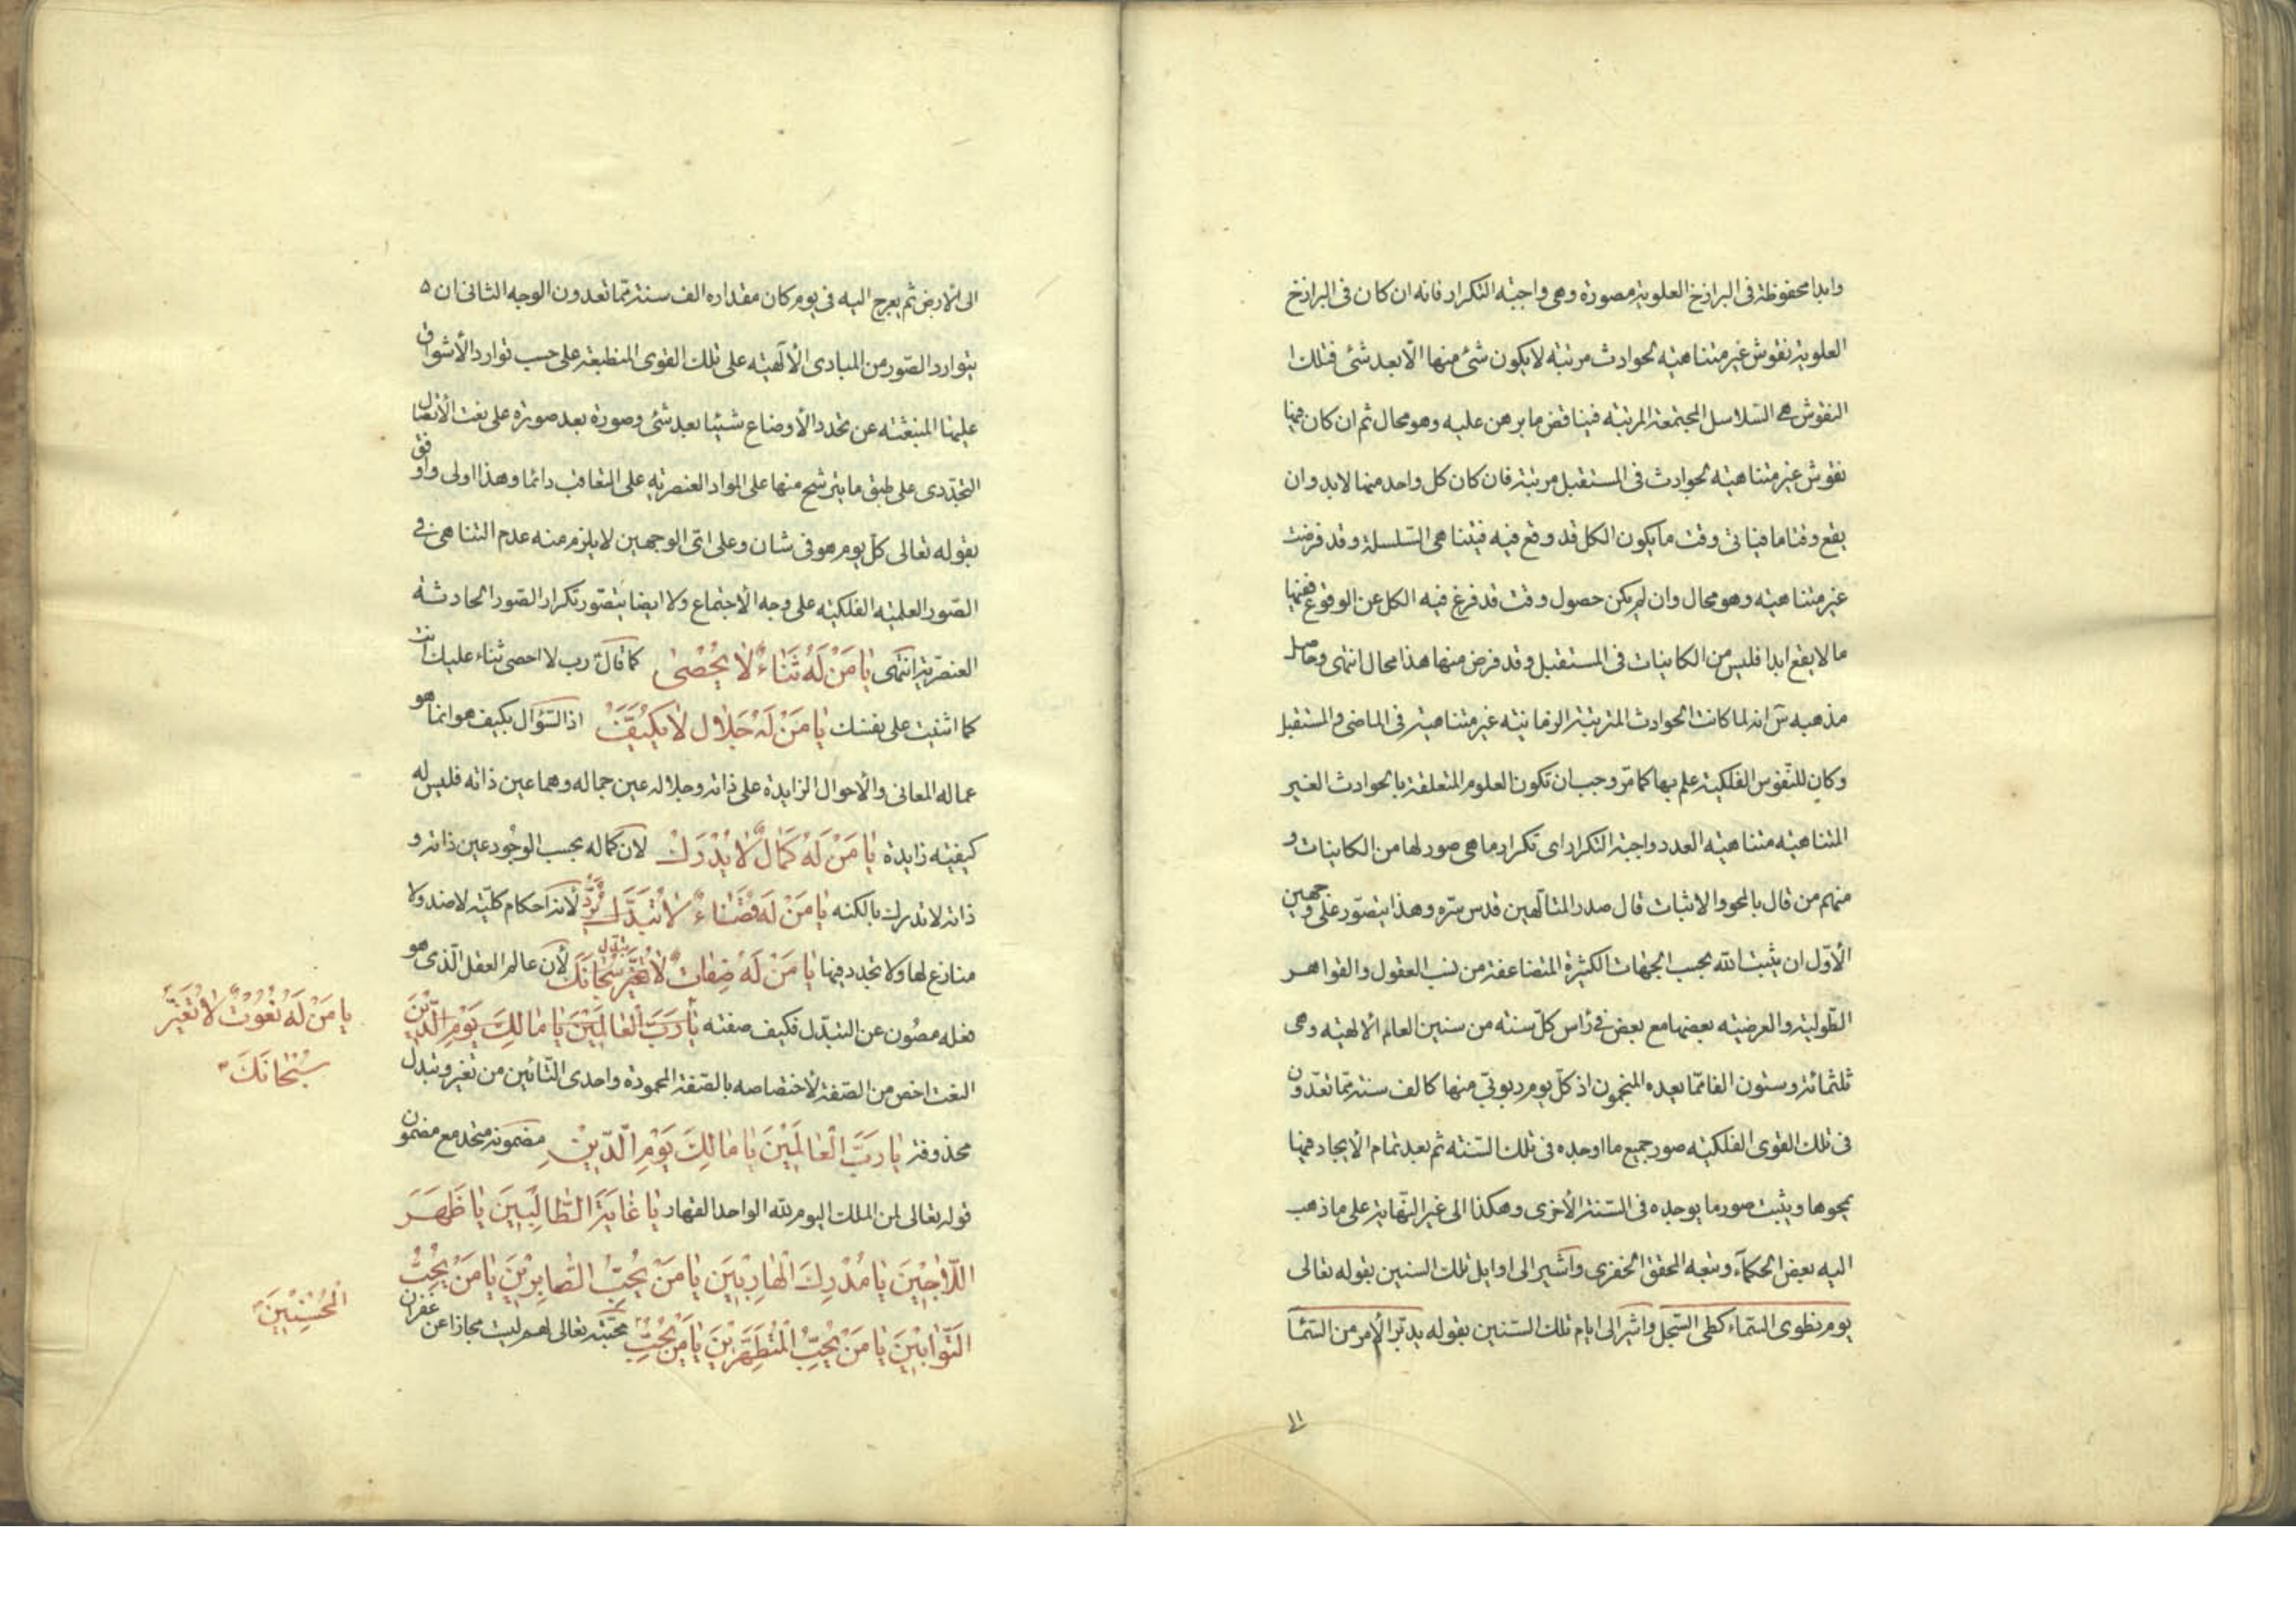 وابدا محفوظة فى البرازخ العلوية مصورة وهى واجبة التكرار فانه ان كان فى البرازخ
العلوية نقوش غير متناهيه لحوادث مرتبه لا يكون شئ منها الا بعد شئ فتلك
النقوش هى السلاسل المجتمعة المرتبه فيناقض ما برهن عليه وهو محال ثم ان كان فيها
نقوش غير متناهيه لحوادث فى المستقبل مرتبة فان كان كل واحد منها لابد وان
يقع وقتا ما فياتى وقت ما يكون الكل قد وقع فيه فيتناهى السلسلة وقد فرضت
غير متناهيه وهو محال وان لم يكن حصول وقت قد فرغ فيه الكل عن الوقوع ففيها
ما لا يقع ابدا فليس من الكاينات فى المستقبل وقد فرض منها هذا محال انتهى وحاصل
مذهبه س انه لما كانت الحوادث المترتبة الزمانيه غير متناهية فى الماضى والمستقبل
وكان للنفوس الفلكية علم بها كما مر وجب ان تكون العلوم المتعلقة بالحوادث الغير
المتناهيه متناهيه العدد واجبة التكرار اى تكرار ما هى صور لها من الكاينات و
منهم من قال بالمحو والاثبات قال صدر المتألهين قدس سره وهذا يتصور على وجهين
الأول ان يثبت الله بحسب الجهات الكثيرة المتضاعفة من نسب العقول والقواهر
الطولية والعرضيه بعضها مع بعض فى راس كل سنه من سنين العالم الالهيه وهى
ثلثمائة وستون الفا مما يعده المنجمون اذ كل يوم ربوبى منها كالف سنة مما تعدون
فى تلك القوى الفلكيه صور جميع ما اوجده فى تلك السنه ثم بعد تمام الايجاد فيها
يمحوها ويثبت صور ما يوجده فى السنة الأخرى وهكذا الى غير النهاية على ما ذهب
اليه بعض الحكمآء وتبعه المحقق الخفرى واشير الى اوايل تلك السنين بقوله تعالى
يوم نطوى السماء كطى السجل واشير الى ايام تلك السنين بقوله يدبر الأمر من السما
الى الارض ثم يعرج اليه فى يوم كان مقداره الف سنة مما تعدون الوجه الثانى ان
يتوارد الصور من المبادى الألهيه على تلك القوى المنطبعة على حسب توارد الأشواق
عليها المنبعثه عن تجدد الأوضاع شيئا بعد شئ وصورة بعد صورة على نعت الأتصال
التجددى على طبق ما يترشح منها على المواد العنصريه على التعاقب دائما وهذا اولى واوفق
بقوله تعالى كل يوم هو فى شان وعلى اى الوجهين لا يلزم منه عدم التناهى فى
الصور العلميه الفلكيه على وجه الاجتماع ولا ايضا يتصور تكرار الصور الحادثه
العنصرية انتهى يَا مَنْ لَهُ ثَنَاءٌ لَا يُحْصٰى كما قال رب لا احصى ثناء عليك انت
كما اثنيت على نفسك يَا مَنْ لَهُ جَلَالٌ لَا يُكَيَّفُ اذ السؤال بكيف هو انما هو
عما له المعانى والأحوال الزايدة على ذاته وجلاله عين جماله وهما عين ذاته فليس له
كيفيه زايدة يَا مَنْ لَهُ كَمَالٌ لَا يُدْرَكُ لان كماله بحسب الوجود عين ذاته و
ذاته لا تدرك بالكنه يَا مَنْ لَهُ قَضَاءٌ لَا يُرَدُّ لأنه احكام كليه لا ضد ولا
منازع لها ولا تجدد فيها يَا مَنْ لَهُ صِفَاتٌ لَا تُبَدَّلُ لأن عالم العقل الذى هو
فعله مصون عن التبدل فكيف صفته يَا رَبَّ الْعَالَمِينَ يَا مَالِكَ يَوْمِ الدِّينِ
النعت اخص من الصفة لأختصاصه بالصفة المحمودة واحدى التائين من تغير وتبدل
محذوفة يَا رَبَّ الْعَالَمِينَ يَا مَالِكَ يَوْمِ الدِّينِ مضمونه متحد مع مضمون
قوله تعالى لمن الملك اليوم لله الواحد القهار يَا غَايَةَ الطَّالِبِينَ يَا ظَهَرَ
اللَّاجِينَ يَا مُدْرِكَ الْهَارِبِينَ يَا مَنْ يُحِبُّ الصَّابِرِينَ يَا مَنْ يُحِبُّ
التَّوَّابِينَ يَا مَنْ يُحِبُّ الْمُتَطَهِّرِينَ يَا مَنْ يُحِبُّ محبته تعالى لهم ليست مجازا عن غفران
يَا مَنْ لَهُ نُعُوتٌ لَا تُغَيَّرُ
سُبْحَانَكَ
الْمُحْسِنِينَ